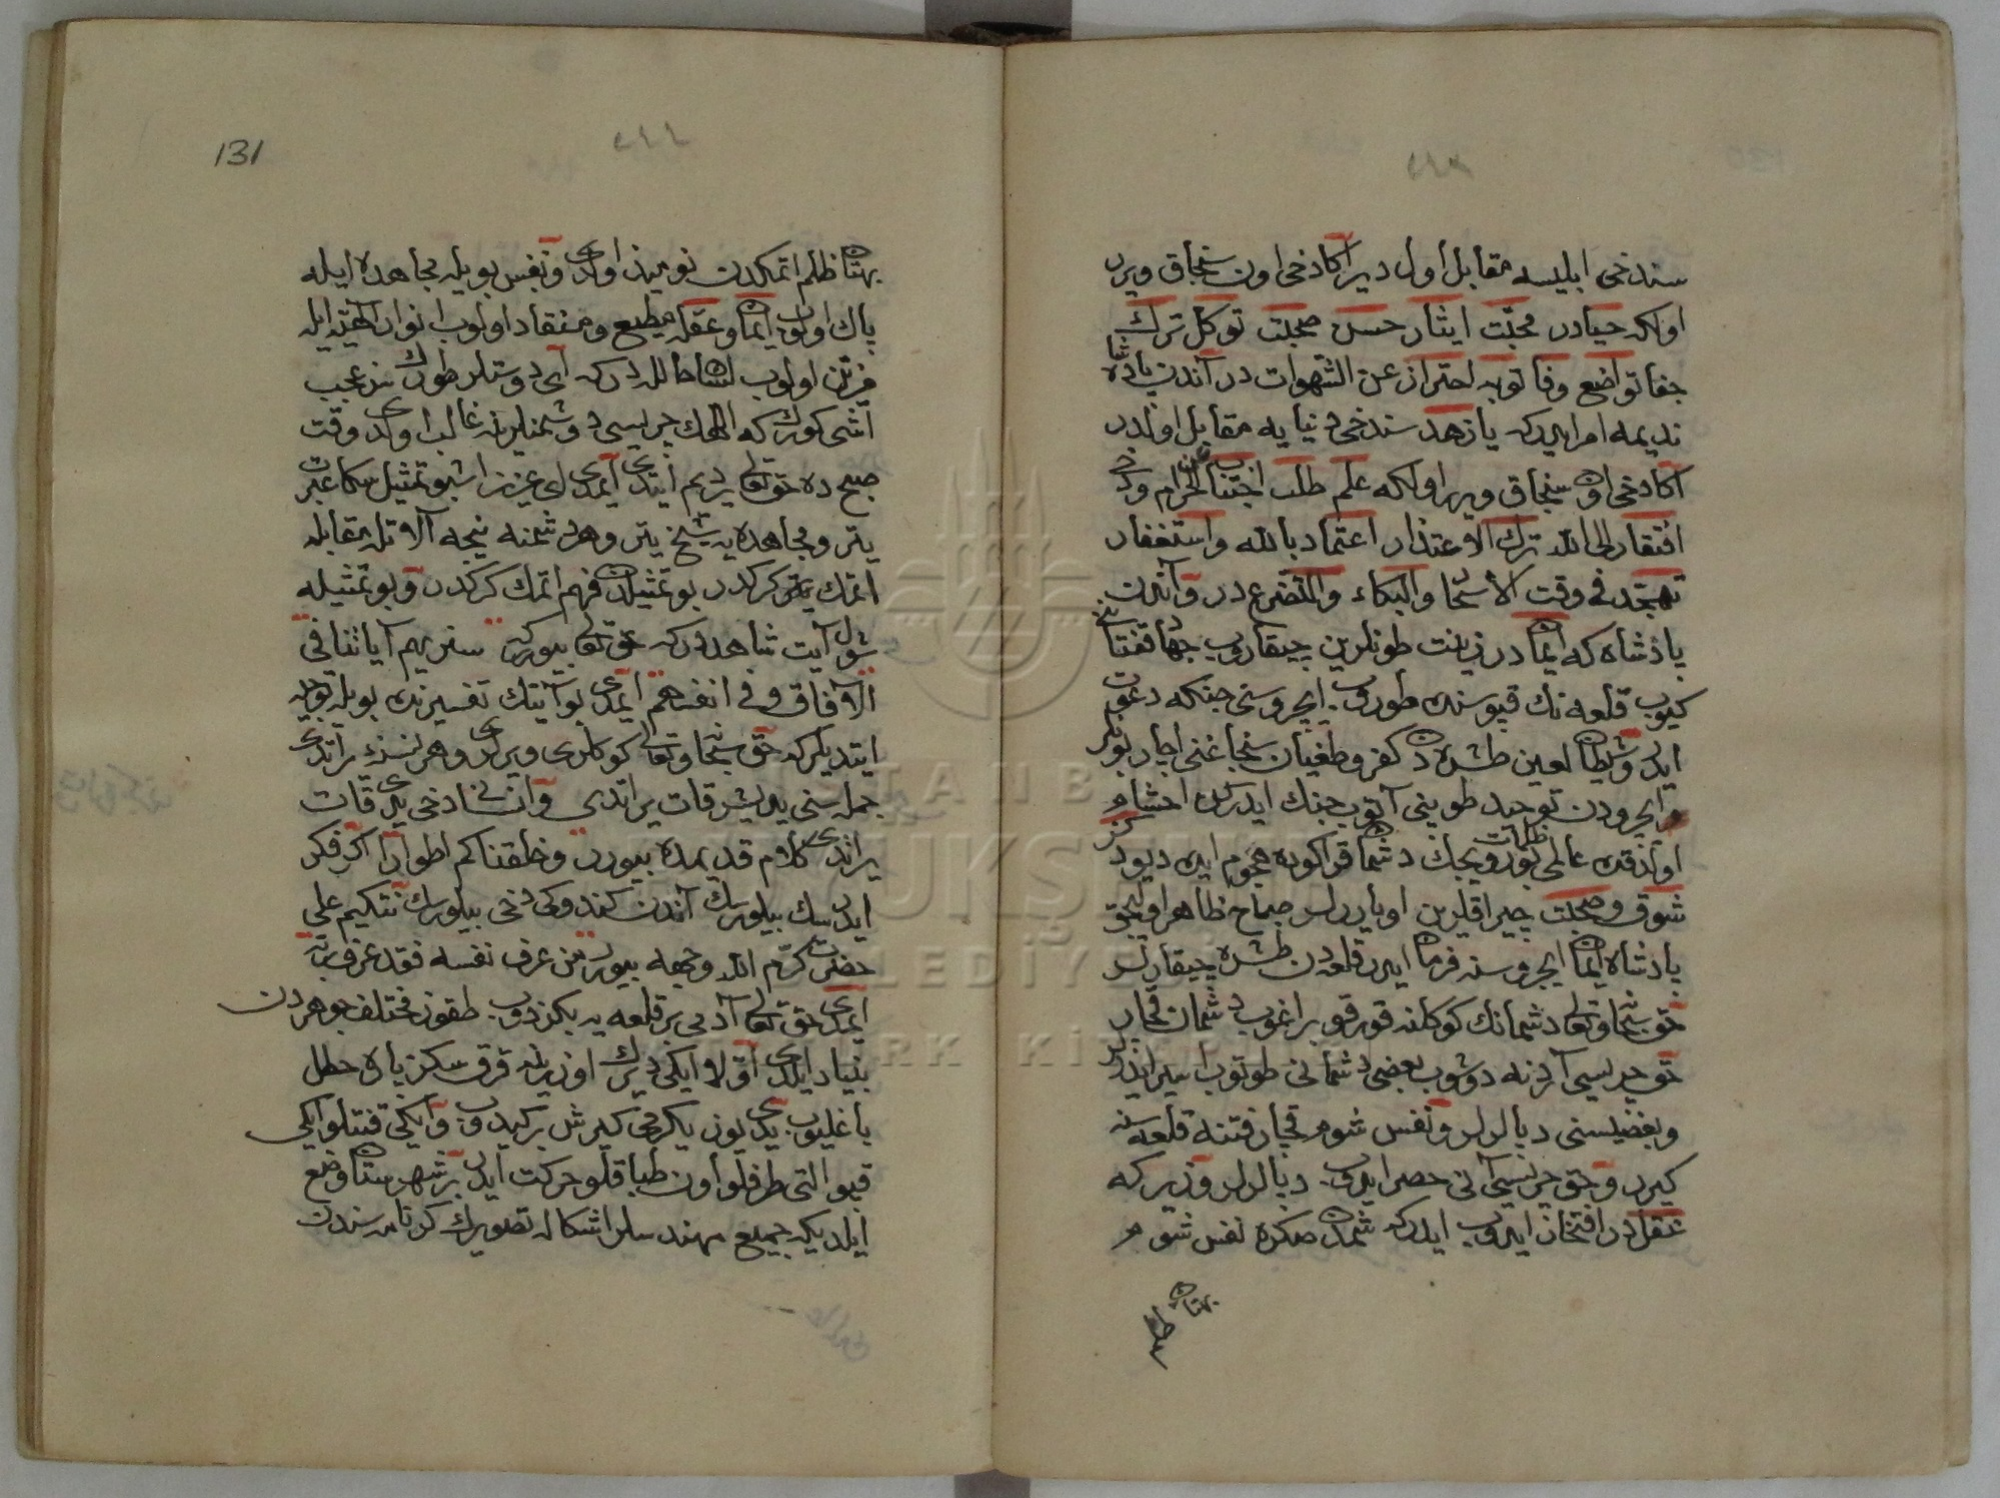 سندخی ابلیسه مقابل اول دیر اکا دخی اون سنجاق ویرر
اولکه حیادر محبّت ایثار حسن صحبت توکّل ترك
جفا تواضع وفا توبه احتراز عن الشهوات در آندن پادشاه
ندیمه امر ایدرکه یا زهد سندخی دنیایه مقابل اول در
اکا دخی اون سنجاق ویرر اولکه علم طلب اجتناب عن الحرام
افتقار الی الله ترك الاعتذار اعتماد بالله واستغفار
تهجّد فی وقت الأسحار والبکاء والتضرع در و آندن
پادشاه که ایمان در زینت طونلرین چیقاروب جهاد قفتانین
کیوب قلعه نك قپوسنده طوروب ایچروسنی جنکه دعوت
ایدر و شیطان لعین طشره دن کفر و طغیان سنجاغنی اچار بونلر
ایچرودن توحید طوپنی آتوب جنك ایدرلر احشام
اولدقده عالمی ظلمات بورویجك دشمان قراکوده هجوم ایده دیو
شوق و محبت چیراقلرین اویاررلر صباح ظاهر اولیجق
پادشاه ایمان ایچروسنه فرمان ایدر قلعه دن طشره چیقارلر
حق سبحانه وتعالی دشمانك کوکلنه قورقو براغوب دشمان قچار
حق چریسی آردنه دوشوب بعضی دشمانی طوتوب اسیر ایدرلر
وبعضیسنی دپالرلر ونفس شوم قچار فتنه قلعه سنه
کیرر و حق چریسی آنی حصر ایدوب دپالرلر وزیر که
عقلدر افتخار ایدوب ایدرکه شمدن صکره نفس شوم
بهتان ظلم
131
بهتان ظلم اتمکدن نومید اولدی ونفس بویله مجاهده ایله
پاك اولوب ایمان و عقله مطیع ومنقاد اولوب انوار الهیّه ایله
مزیّن اولوب انسان کامل در که آی دوستلر طورك بنزعجب
آشی کورك که اللهك چریسی دشمنلرنه غالب اولدی وقت
صبح ده حق تعالی یردیم ایتدی ایمدی ای عزیز اشبو تمثیل سکا عبرت
یتر و مجاهده یه شیخ یتر وهر دشمنه نیجه آلاتله مقابله
اتمك یتر کرکدر بو تمثیلدن فهم اتمك کرکدر وبو تمثیله
شول آیت شاهددرکه حق تعالی بیورر سنریهم آیاتنا فی
الآفاق وفی انفسهم ایمدی بو آیتك تفسیرنده بویله توجیه
ایتدیلر که حق سبحانه وتعالی کوکلری ویرلری وهر نسنه یراتدی
جمله سنی یدیشر قات یراتدی وانسانی دخی یدی قات
یراتدی کلام قدیمده بیورر وخلقناکم اطوارا اکر فکر
ایدرسك بیلورسك آندن کندوکی دخی بیلورسك نتکیم علی
حضرت کرّم الله وجهه بیورر من عرف نفسه فقد عرف ربّه
ایمدی حق تعالی آدمی بر قلعه یه بکزدوب طقوز مختلف جوهردن
بنیاد ایلدی اوّلا ایکی دیرك اوزرینه قرق سکز پاره حطل
باغلیوب یدی یوز یکرمی کیرش برکیدوب و ایکی قنتلو ایکی
قپو التی طرفلو اون طباقلو حرکت ایدر بر شهرستان وضع
ایلدیکه جمیع مهندسلر اشکاله تصویرك کرتاسندن